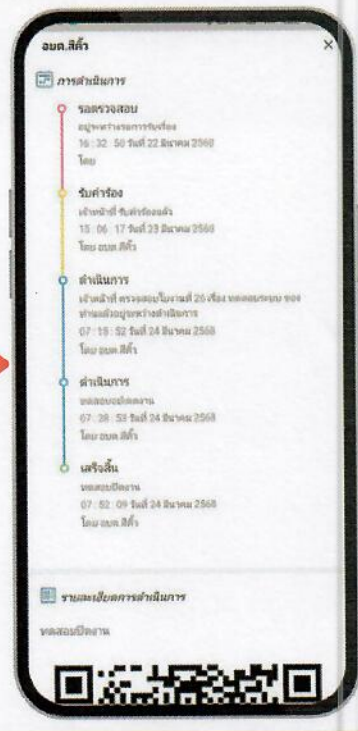 อบต.สีคิ้ว
×
การดำเนินการ
รอตรวจสอบ
อยู่ระหว่างรอการรับเรื่อง
16 : 32 : 50 วันที่ 22 มีนาคม 2568
โดย
รับคำร้อง
เจ้าหน้าที่ รับคำร้องแล้ว
15 : 06 : 17 วันที่ 23 มีนาคม 2568
โดย อบต.สีคิ้ว
ดำเนินการ
เจ้าหน้าที่ ตรวจสอบใบงานที่ 26 เรื่อง ทดสอบระบบ ของ
ท่านแล้วอยู่ระหว่างดำเนินการ
07 : 15 : 52 วันที่ 24 มีนาคม 2568
โดย อบต.สีคิ้ว
ดำเนินการ
07 : 28 : 53 วันที่ 24 มีนาคม 2568
โดย อบต.สีคิ้ว
เสร็จสิ้น
ทดสอบปิดงาน
07 : 52 : 09 วันที่ 24 มีนาคม 2568
โดย อบต.สีคิ้ว
รายละเอียดการดำเนินการ
ทดสอบปิดงาน